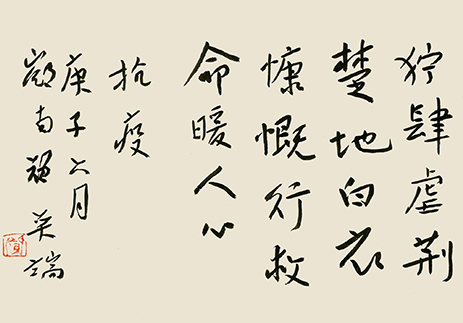 狞肆虐荆
楚地白衣
慷慨行救
命暖人心
抗疫
庚子六月
嶺南英端